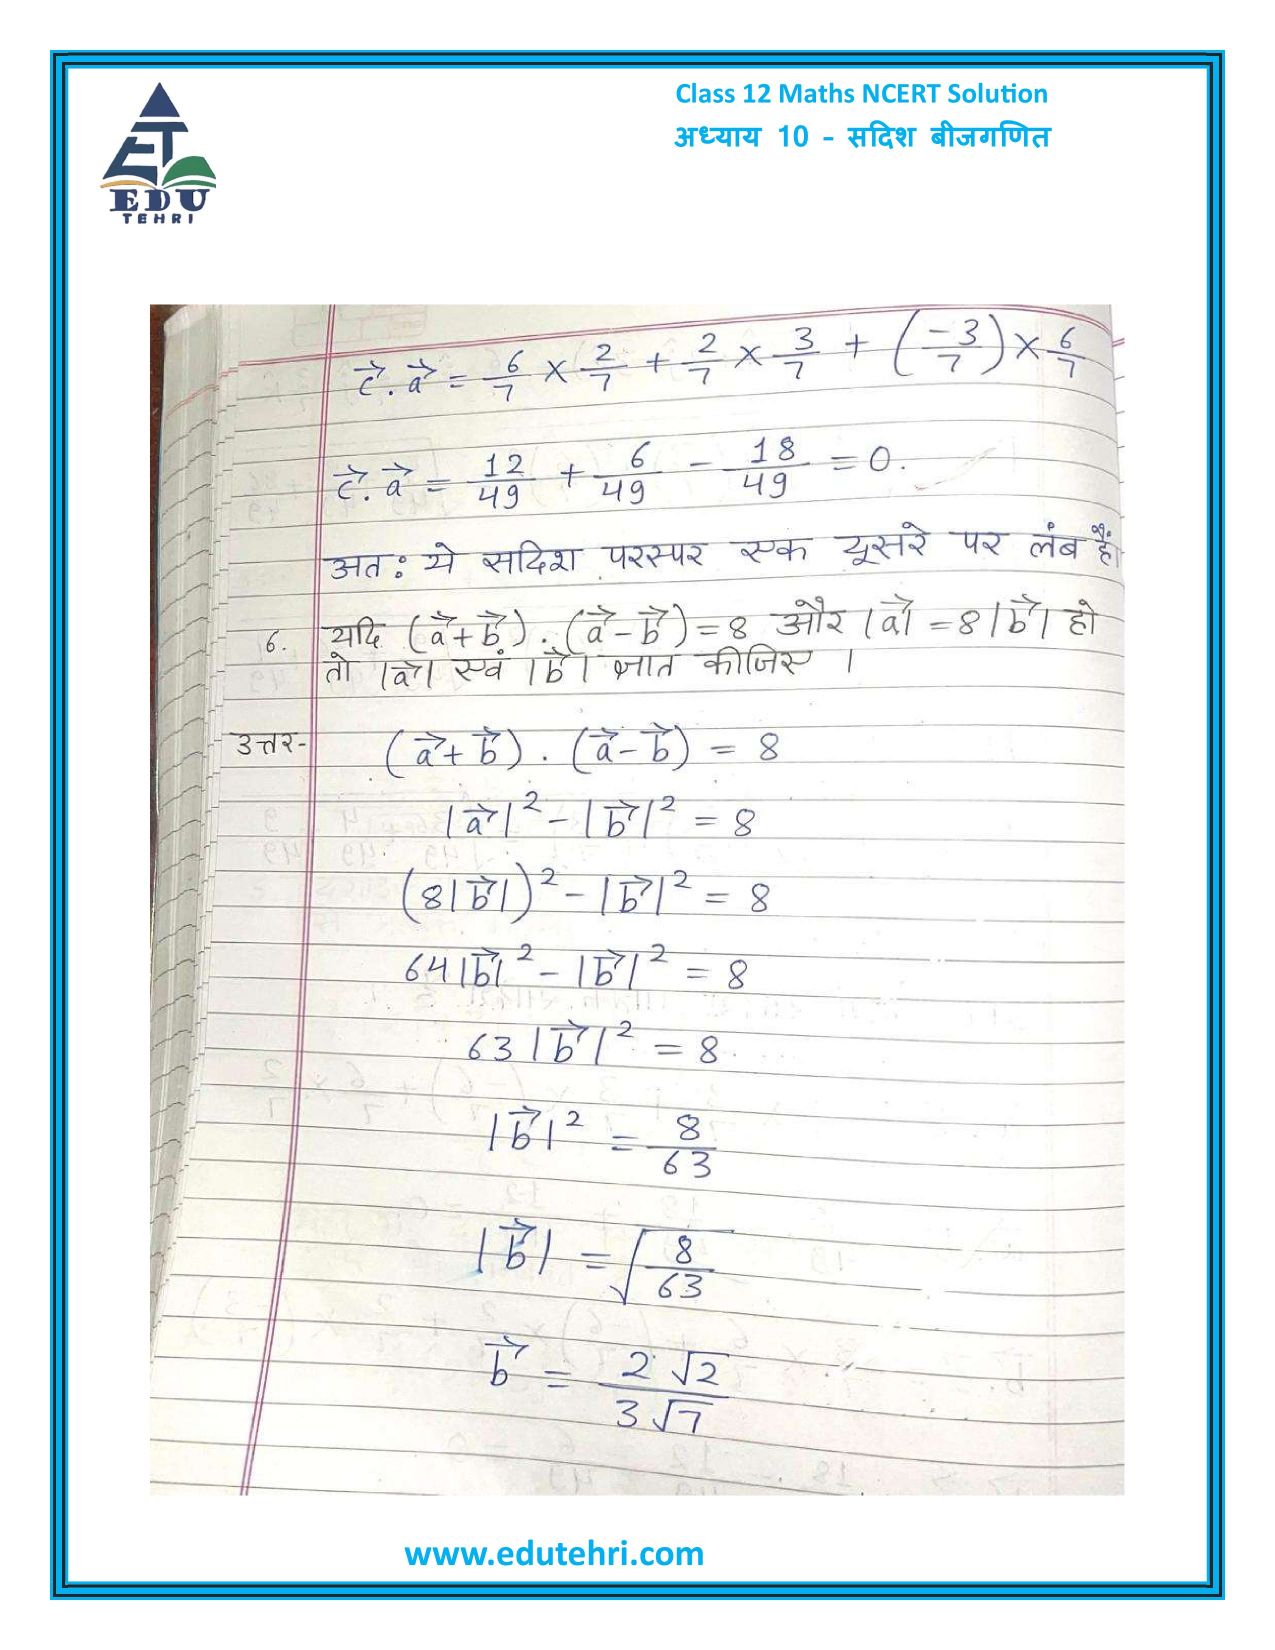 Class 12 Maths NCERT Solution
अध्याय 10 - सदिश बीजगणित
EDU
TEHRI
c⃗. a⃗ = 6/7 × 2/7 + 2/7 × 3/7 + (-3/7) × 6/7
c⃗. a⃗ = 12/49 + 6/49 - 18/49 = 0.
अत: ये सदिश परस्पर एक दूसरे पर लंब हैं।
6. यदि (a⃗ + b⃗) . (a⃗ - b⃗) = 8 और |a⃗| = 8|b⃗| हो
तो |a⃗| एवं |b⃗| ज्ञात कीजिए ।
उत्तर- (a⃗ + b⃗) . (a⃗ - b⃗) = 8
|a⃗|² - |b⃗|² = 8
(8|b⃗|)² - |b⃗|² = 8
64|b⃗|² - |b⃗|² = 8
63|b⃗|² = 8
|b⃗|² = 8/63
|b⃗| = √(8/63)
b⃗ = 2√2/3√7
www.edutehri.com